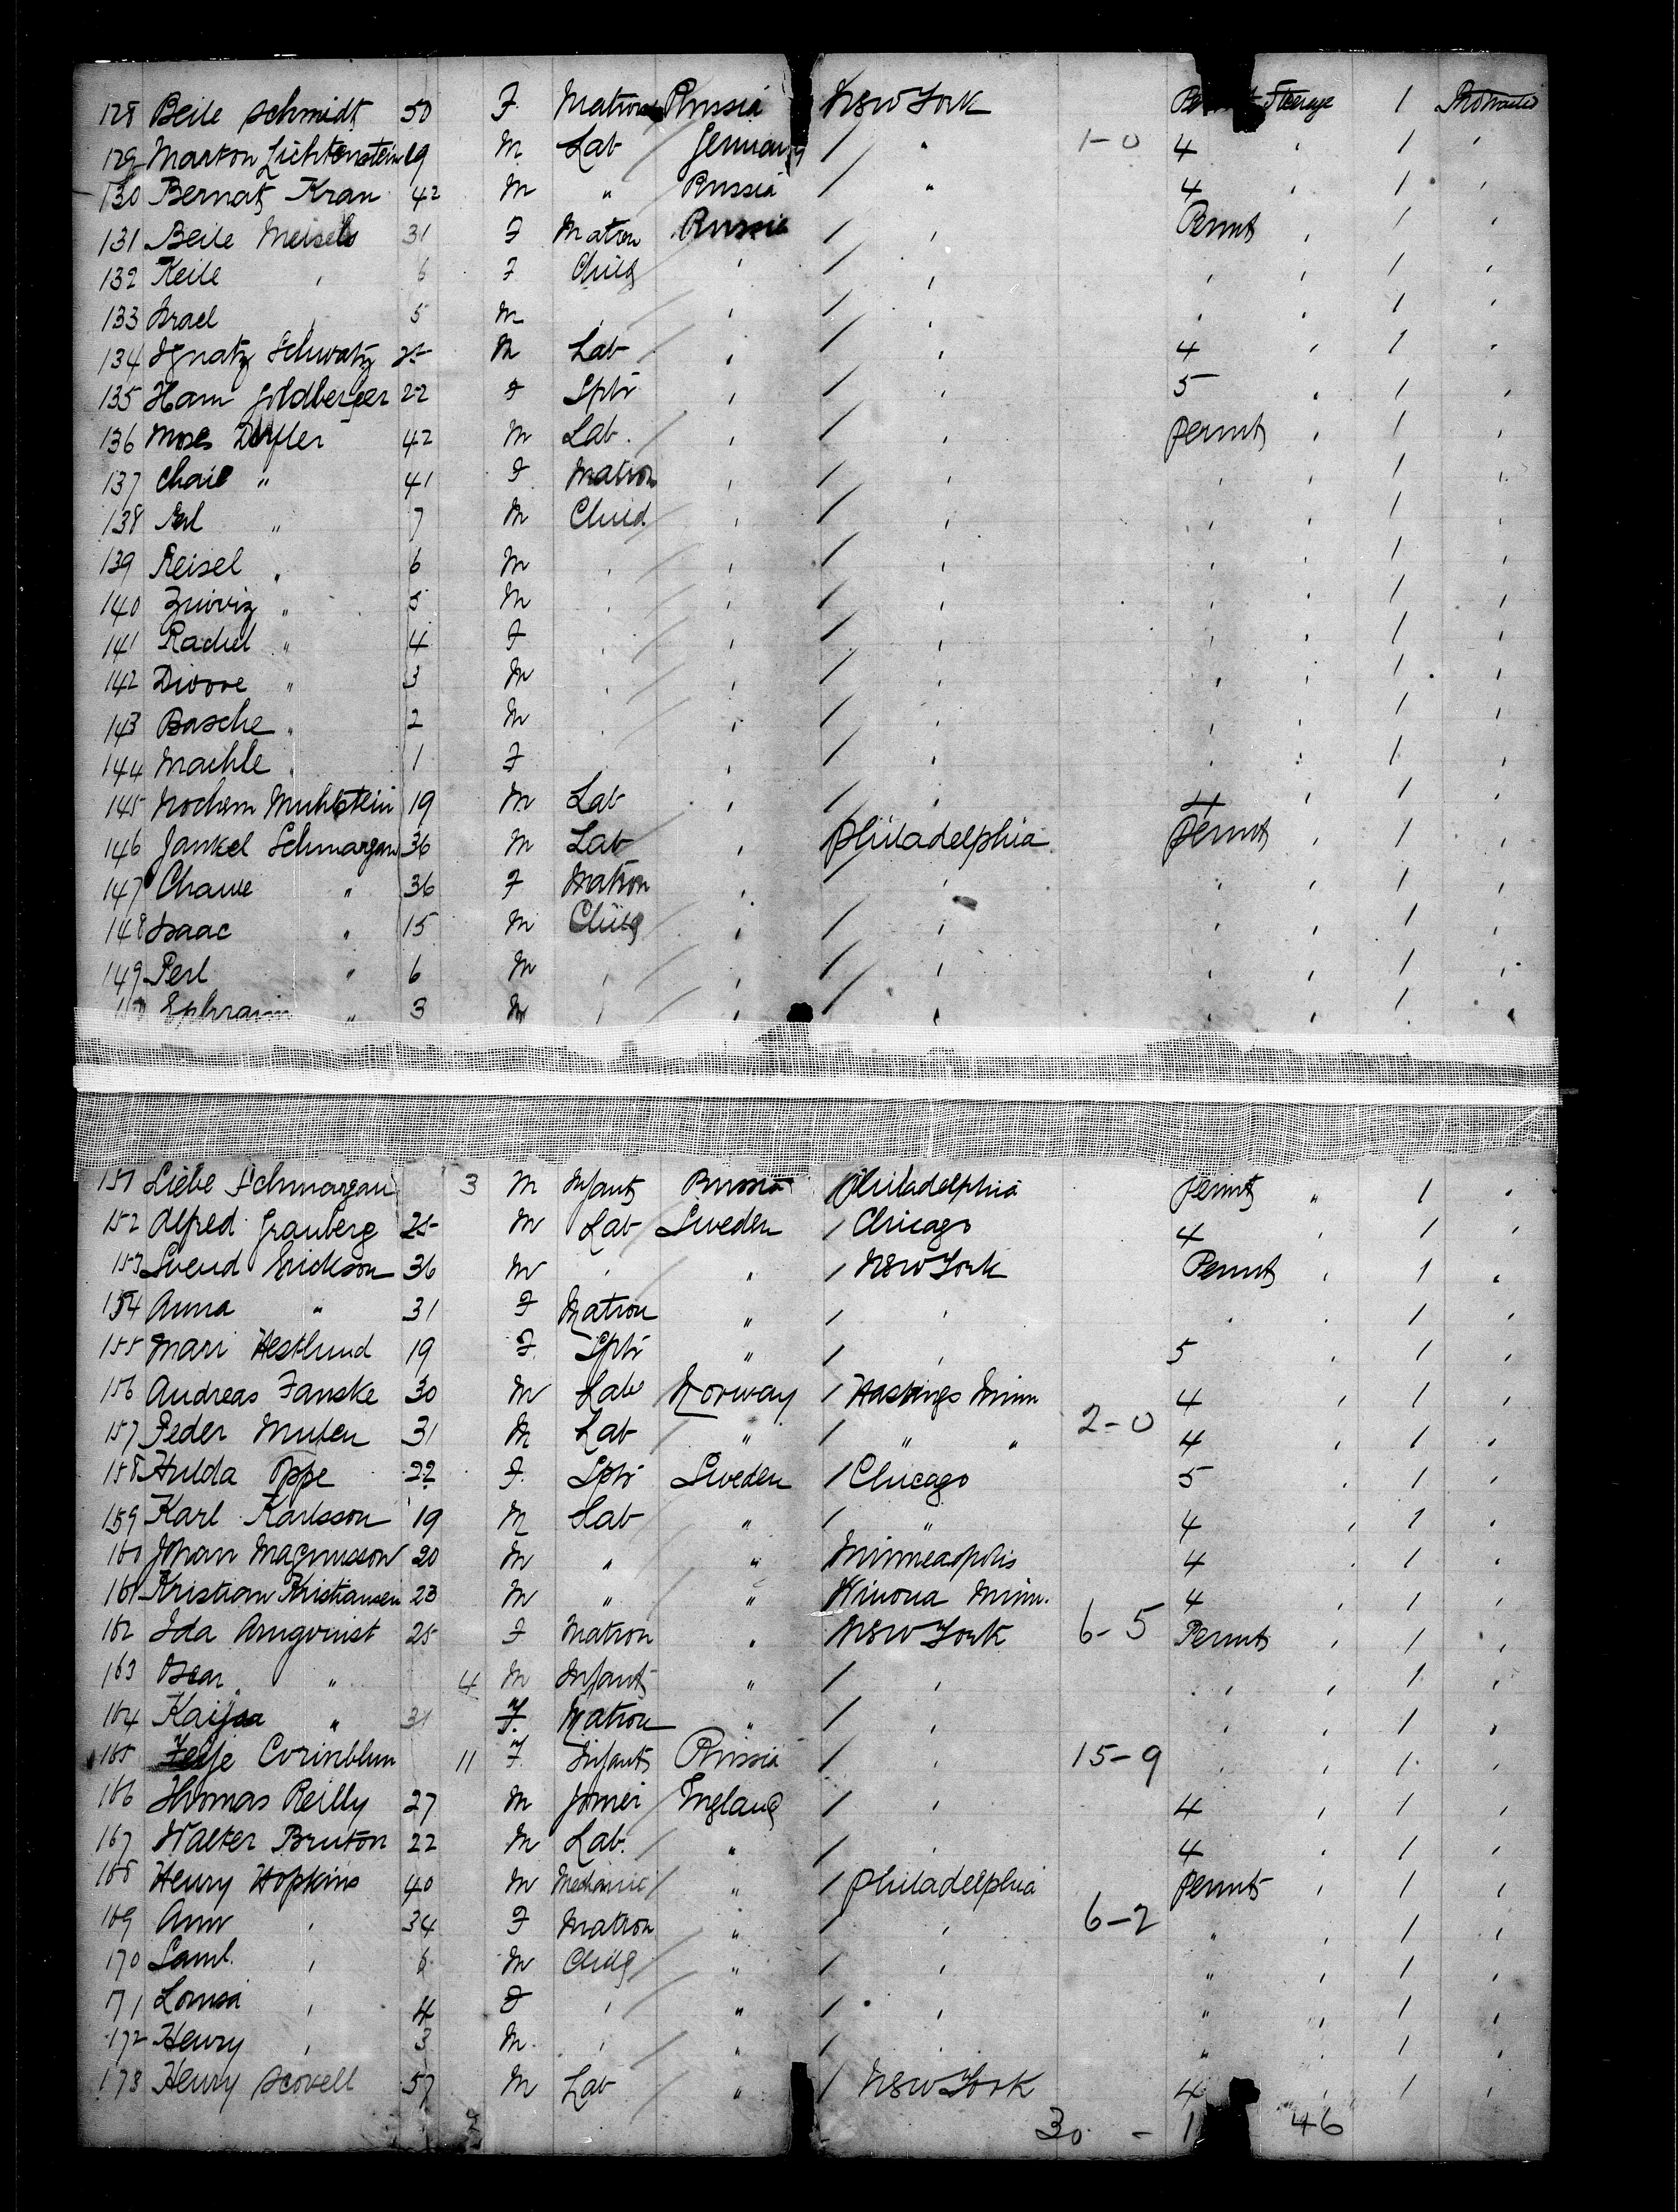 128 Beile Schmidt 50 F Matron Russia New York Steerage 1
129 Markon Lichtenstein 19 M Lab Germany / " 1-0 4 ' 1 '
130 Bernat Kran 42 M " Russia / " 4 ' 1 '
131 Beile Meisels 31 F Matron Russia / ' Permt ' 1 '
132 Keile ' 6 F Child ' / ' ' ' 1 '
133 Israel ' 5 M ' ' / ' ' ' 1 '
134 Ignatz Schwatz 25 M Lab ' / ' 4 ' 1 '
135 Hani Goldberger 22 F Sptr ' / ' 5 ' 1 '
136 Moses 42 M Lab. ' / ' permt ' 1 '
137 Chaie " 41 F Matron ' / ' ' ' 1 '
138 " 7 M Child ' / ' ' ' 1 '
139 Reisel " 6 M ' ' / ' ' ' 1 '
140 " 5 M ' ' / ' ' ' 1 '
141 Rachel " 4 F ' ' / ' ' ' 1 '
142 Divore " 3 M ' ' / ' ' ' 1 '
143 Basche " 2 M ' ' / ' ' ' 1 '
144 Machle " 1 F ' ' / ' ' ' 1 '
145 Nochem Muhlstein 19 M Lab ' / ' 4 ' 1 '
146 Jankel Schmargan 36 M Lab ' Philadelphia permt ' 1 '
147 Chawe " 36 F Matron ' / ' ' ' 1 '
148 Isaac " 15 M Child ' / ' ' ' 1 '
149 Perl " 6 M ' ' / ' ' ' 1 '
150 Ephraim " 3 M ' ' / ' ' ' 1 '
151 Liebe Schmargan 3 M Infant Russia Philadelphia permt " 1 '
152 Alfred Granberg 25 M Lab Sweden / Chicago 4 ' 1 '
153 Svend Erickson 36 M ' " / New York Permt ' 1 '
154 Anna " 31 F Matron " / ' ' ' 1 '
155 Mari Hestlund 19 F. Sptr " / ' 5 ' 1 '
156 Andreas Fanske 30 M Lab Norway / Hastings Minn 4 ' 1 '
157 Peder Mulen 31 M Lab " / " " 2-0 4 ' 1 '
158 Hulda Oppe 22 F. Sptr Sweden / Chicago 5 ' 1 '
159 Karl Karlsson 19 M Lab " / " 4 ' 1 '
160 Johan Magnusson 20 M " " Minneapolis 4 ' 1 '
161 Kristian Kristiansen 23 M " " Winona Minn. 4 ' 1 '
162 Ida Arnqvist 25 F Matron " New York 6-5 Permt ' 1 '
163 Oscar " 4 M Infant " / ' ' ' 1 '
164 Kaijsa " 31 F. Matron " / ' ' ' 1 '
165 Feije Corinblum 11 F. Infant Russia / ' 15-9 ' ' 1 '
166 Thomas Reilly 27 M Joiner England / ' 4 ' 1 '
167 Walter Bruton 22 M Lab. " / ' 4 ' 1 '
168 Henry Hopkins 40 M Mechanic " / Philadelphia permt ' 1 '
169 Ann ' 34 F Matron " / ' 6-2 " ' 1 '
170 Saml. ' 6 M Child " / ' " ' 1 '
171 Louisa ' 4 F ' " / ' " ' 1 '
172 Henry ' 3 M. ' " / ' " ' 1 '
173 Henry Scovell 57 M Lab " / New York 4 ' 1 '
30 - 1 46